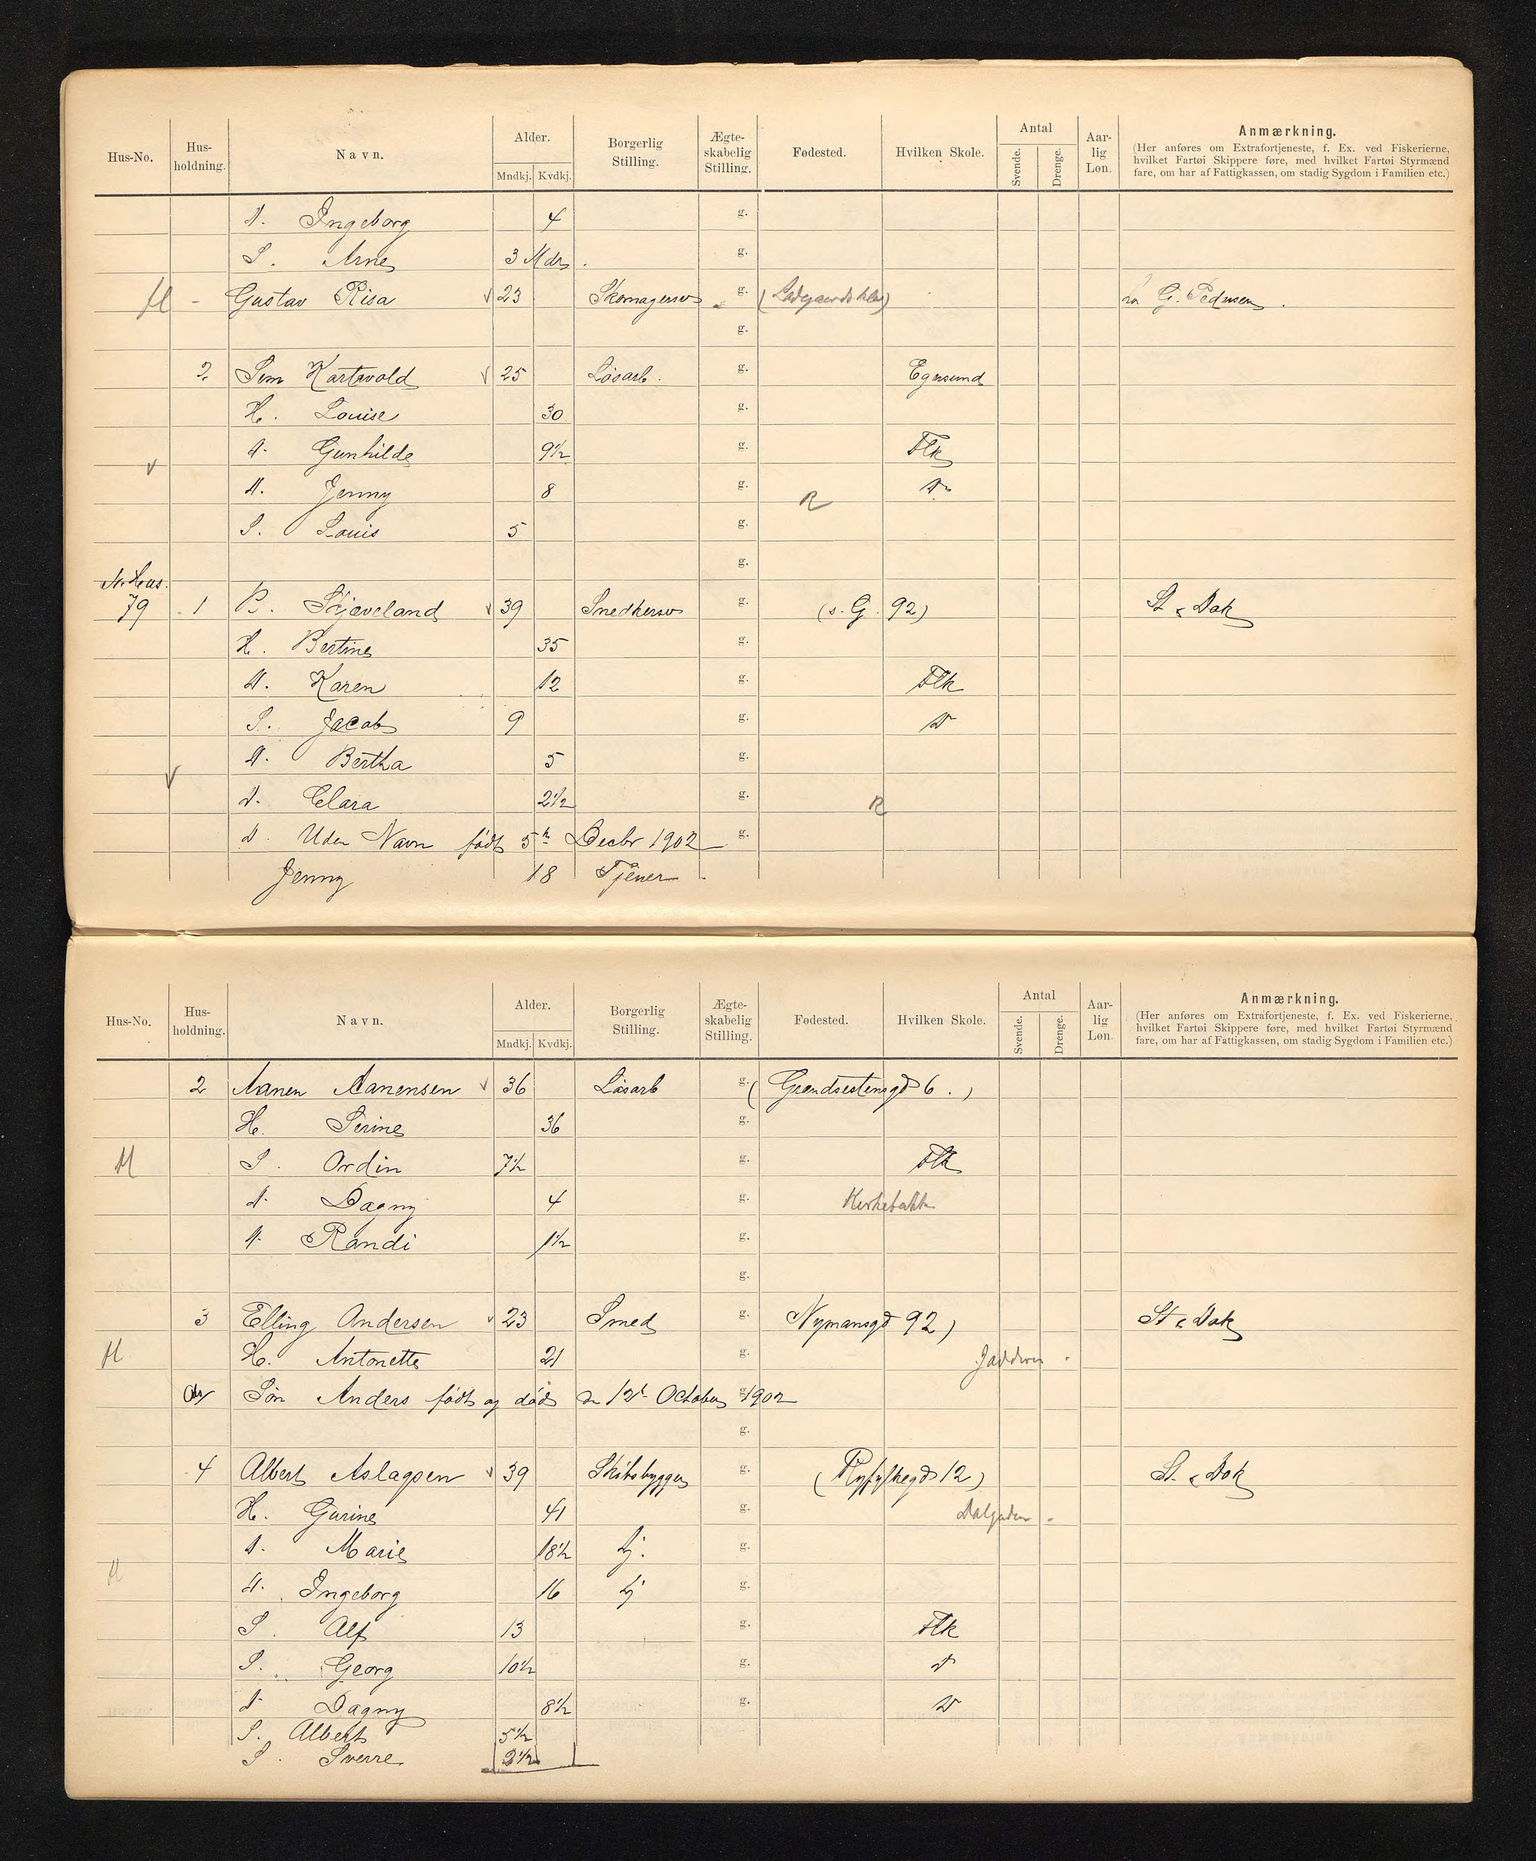 Hus-No. Hus-holdning. Navn. Alder. Mndkj. Kvdkj. Borgerlig Stilling. Ægte-skabelig Stilling. Fødested. Hvilken Skole. Antal Svende. Drenge. Aar-lig Løn. Anmærkning.
(Her anføres om Extrafortjeneste, f. Ex. ved Fiskerierne,
hvilket Fartøi Skippere føre, med hvilket Fartøi Styrmænd
fare, om har af Fattigkassen, om stadig Sygdom i Familien etc.)
D. Ingeborg 4 g.
S. Arne 3 Mdr. g.
M - Gustav Risa √ 23 Skomagersv g. G. Pedersen.
g.
2 Sem √ 25 Løsarb. g. Egersund
H. Louise 30 g.
D. Gunhilde 9½ g. Flk
√
D. Jenny 8 g. R D
S. Louis 5 g.
g.
N. Hus.
79 1 B. Skjæveland √ 39 Snedkersv g. (s. G. 92) St. & Dok
H. Bertine 35 g.
D. Karen 12 g. Flk
S. Jacob 9 g. D
D. Bertha 5 g.
√
D. Clara 2½ g. R
D. Uden Navn født 5te Decbr 1902 g.
Jenny 18 Tjener
Hus-No. Hus-holdning. Navn. Alder. Mndkj. Kvdkj. Borgerlig Stilling. Ægte-skabelig Stilling. Fødested. Hvilken Skole. Antal Svende. Drenge. Aar-lig Løn. Anmærkning.
(Her anføres om Extrafortjeneste, f. Ex. ved Fiskerierne,
hvilket Fartøi Skippere føre, med hvilket Fartøi Styrmænd
fare, om har af Fattigkassen, om stadig Sygdom i Familien etc.)
2 Aanen Aanensen √ 36 Løsarb g. 6.)
H. Serine 36 g.
M S. Ordin 7½ g. Flk
D. Dagny 4 g. Kirkebakk
D. Randi 1½ g.
g.
3 Elling Andersen √ 23 Smed g. Nymansgd 92) St & Dok
M H. Antonette 21 g. Jædderen
Søn Anders født og død den 12te October 1902 g.
g.
4 Albert Aslagsen √ 39 Skibsbygger g. (Ryfylkegd 12) St. & Dok
H. Gurine 41 g. Dalgaden
D. Marie 18½ Tj. g.
M D. Ingeborg 16 Tj g.
S. Alf 13 g. Flk
S. Georg 10½ g. D
D. Dagny 8½ g. D
S. Albert 5½
S. Sverre 2½